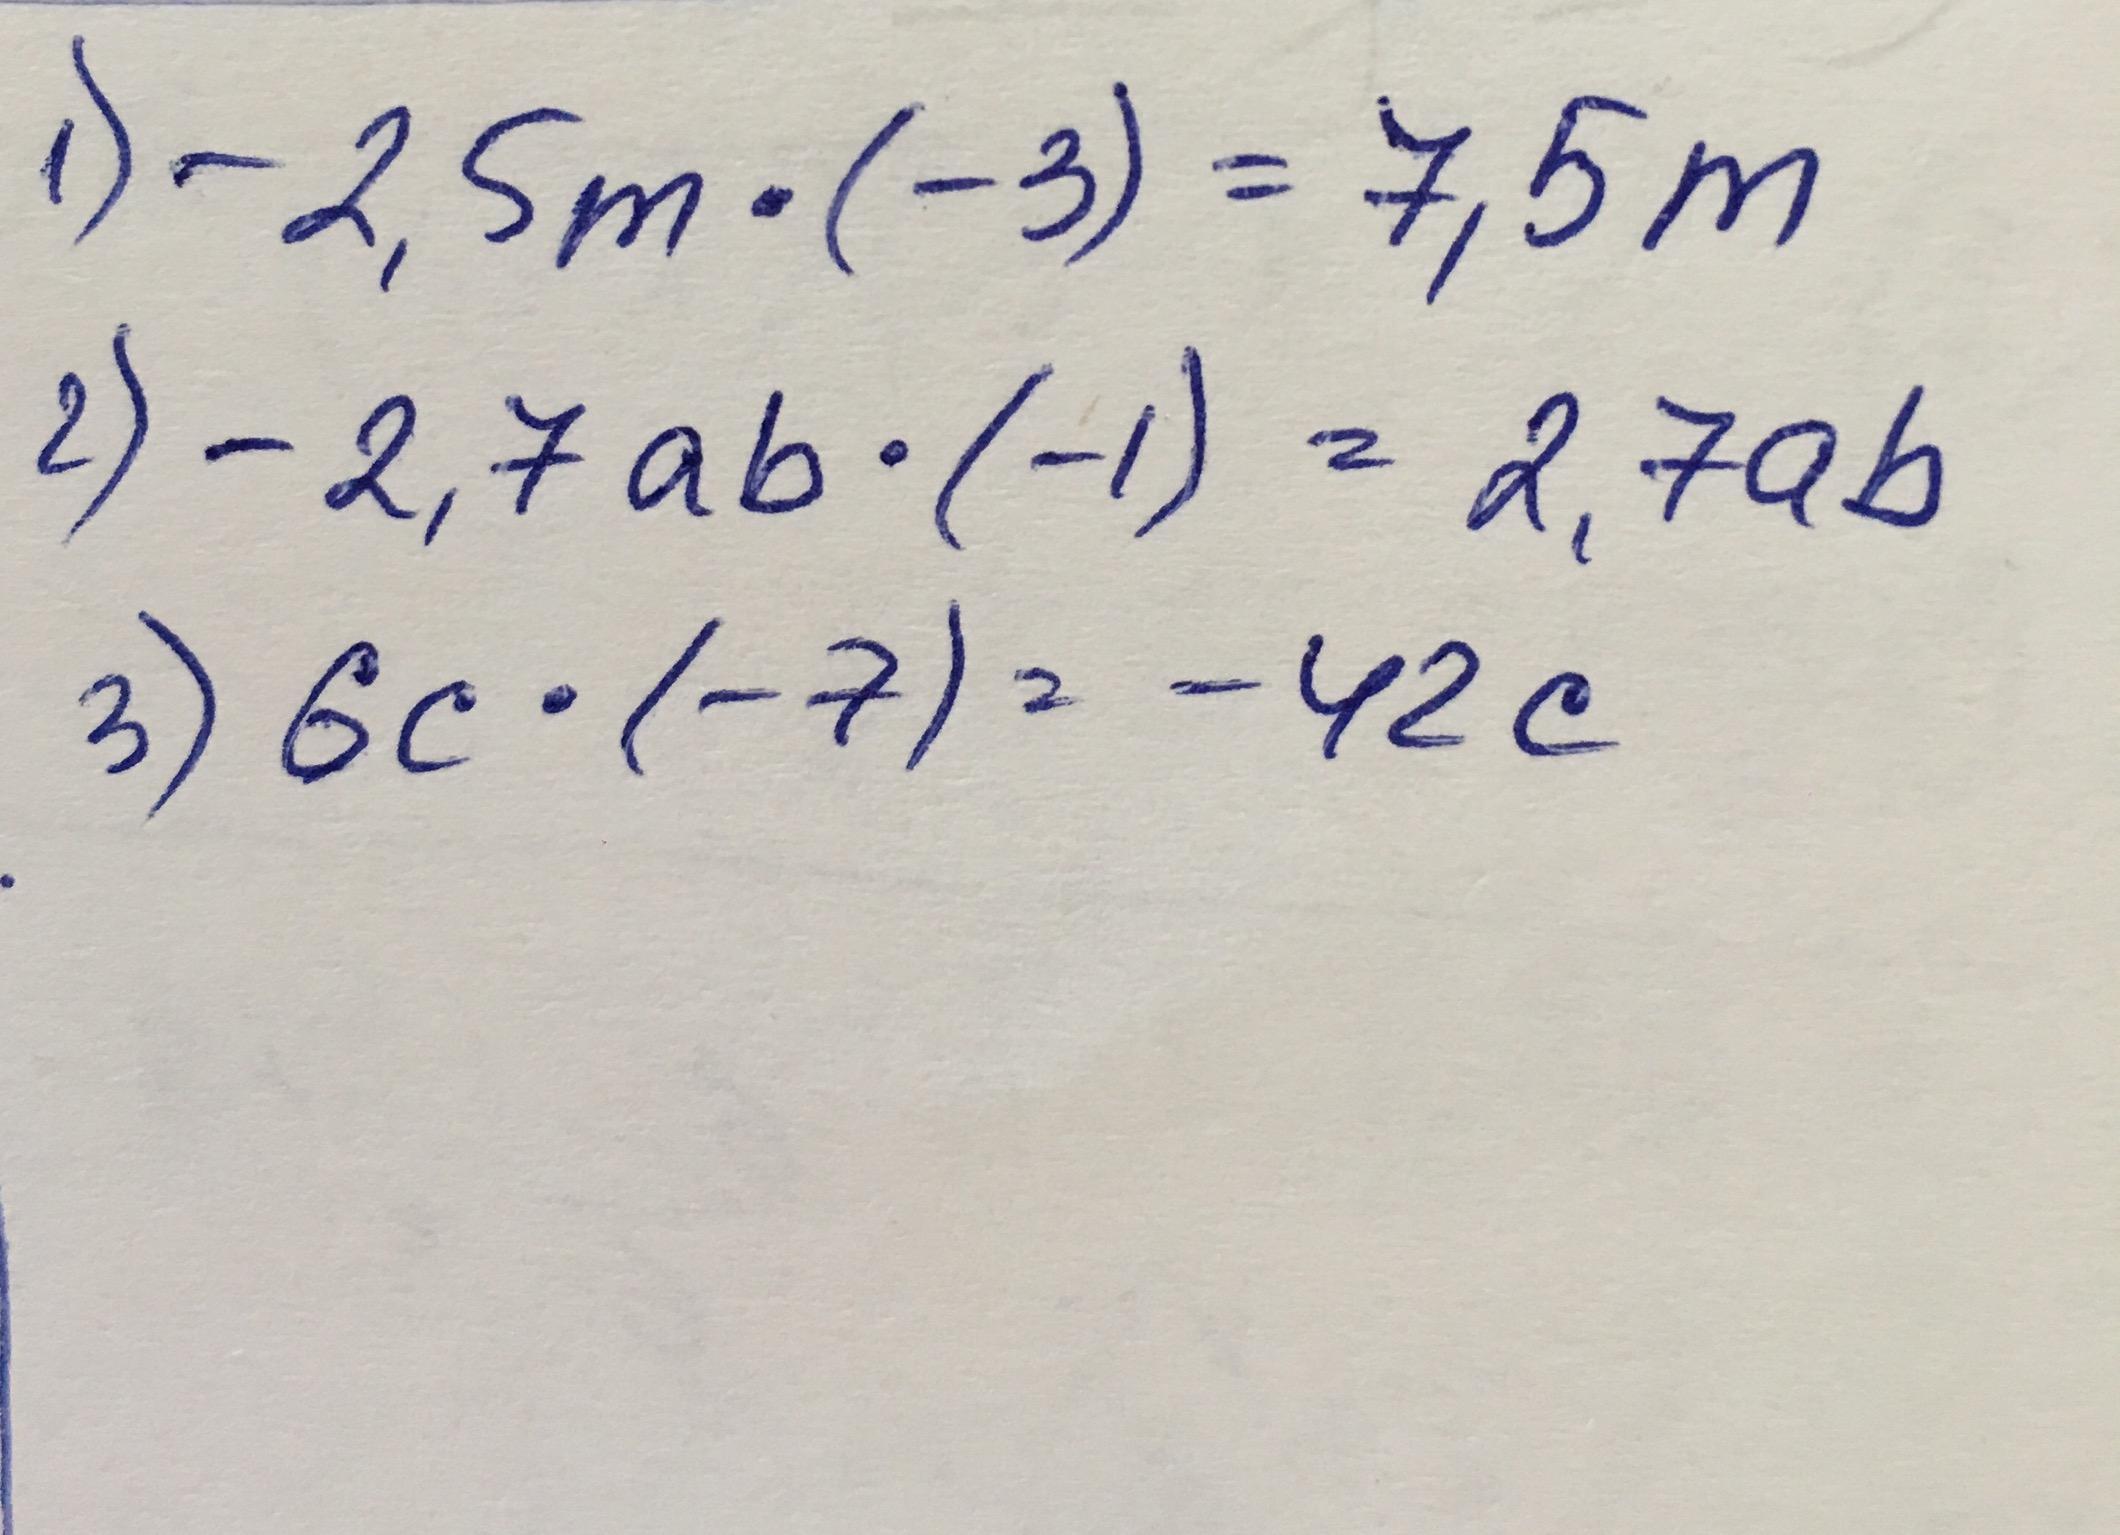 1) - 2,5m · (-3) = 7,5m
2) - 2,7ab · (-1) = 2,7ab
3) 6c · (-7) = -42c